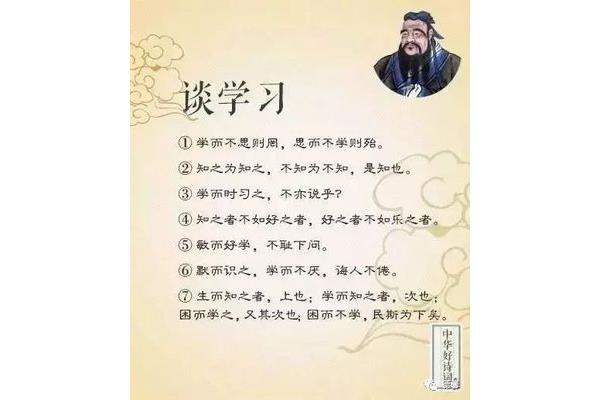 谈学习
①学而不思则罔，思而不学则殆。
②知之为知之，不知为不知，是知也。
③学而时习之，不亦说乎?
④知之者不如好之者，好之者不如乐之者。
⑤敏而好学，不耻下问。
⑥默而识之，学而不厌，诲人不倦。
⑦生而知之者，上也；学而知之者，次也；
困而学之，又其次也；困而不学，民斯为下矣。
中华好诗词